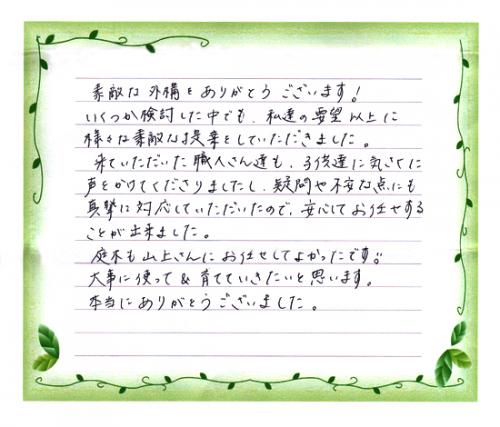 素敵な外構をありがとうございます!
いくつか検討した中でも、私達の要望以上に
様々な素敵な提案をしていただきました。
来ていただいた職人さん達も、子供達に気さくに
声をかけてくださりましたし、疑問や不安な点にも
真摯に対応していただいたので、安心してお任せする
ことが出来ました。
庭木も山上さんにお任せしてよかったです!!
大事に使って&育てていきたいと思います。
本当にありがとうございました。